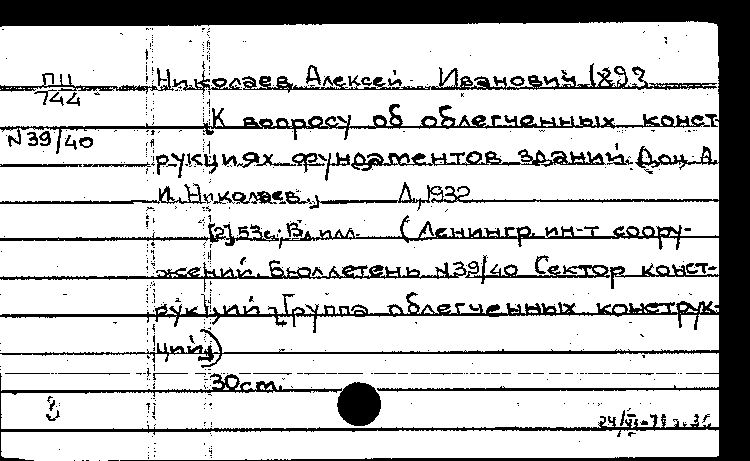 ПII
744
N39/40
Николаев, Алексей Иванович 189?
К вопросу об облегченных конст-
рукциях фундаментов зданий. Доц. А.
И. Николаев. Л., 1932
[2], 53с.; Вл. илл. (Ленингр. ин-т соору-
жений. Бюллетень N39/40 Сектор конст-
рукций. Группа облегченных конструк-
ций)
30см.